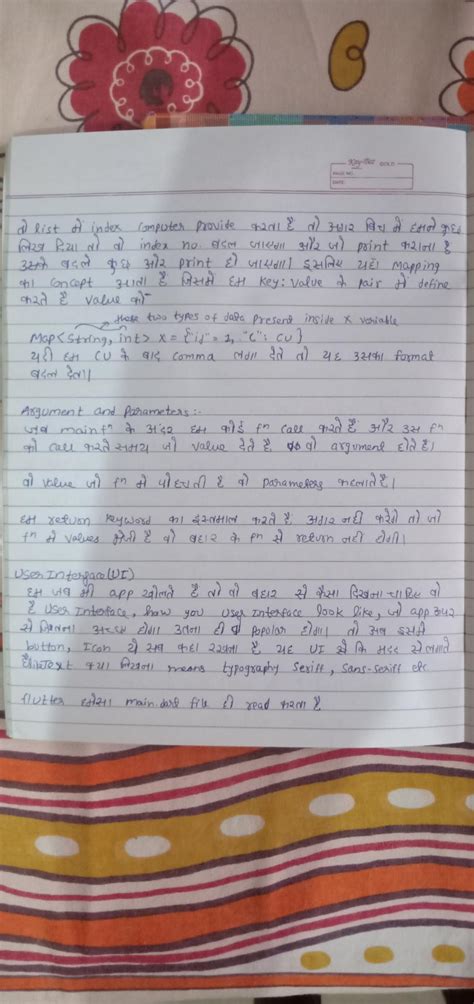 Kay-Dee GOLD
PAGE NO.
DATE:
तो list में index computer provide करता है तो अगर बिच में हमने कुछ
लिख दिया तो वो index no. बदल जाएगा और जो print कराना है
उसके बदले कुछ और print हो जाएगा। इसलिए यहाँ Mapping
का concept आता है जिसमें हम key: value के pair में define
करते है value को
these two types of data present inside x variable
Map<String, int> x =
यही हम CU के बाद comma लगा देते तो यह उसका format
बदल देता।
Argument and Parameters:-
जब main fn के अंदर हम कोई fn call करते है और उस fn
को call करते समय जो value देते है वो argument होते है।
वो value जो fn में पोहचती है वो parameters कहलाते है।
हम return keyword का इस्तमाल करते है अगर नहीं करेंगे तो जो
fn में values होती है वो बहार के fn से return नहीं होगी।
User Interface (UI)
हम जब भी app खोलते है तो वो बहार से कैसा दिखना चाहिए वो
है User Interface, how you user interface look like, जो app ऊपर
से जितना अच्छा होगा उतना ही वो popular होगा। तो अब इसमें
button, Icon ये सब कहा रखना है, यह UI से कि मदद से लगाते
है। Text कैसा लिखना means typography Seriff, Sans-seriff etc
flutter हमेसा main.dart file ही read करता है